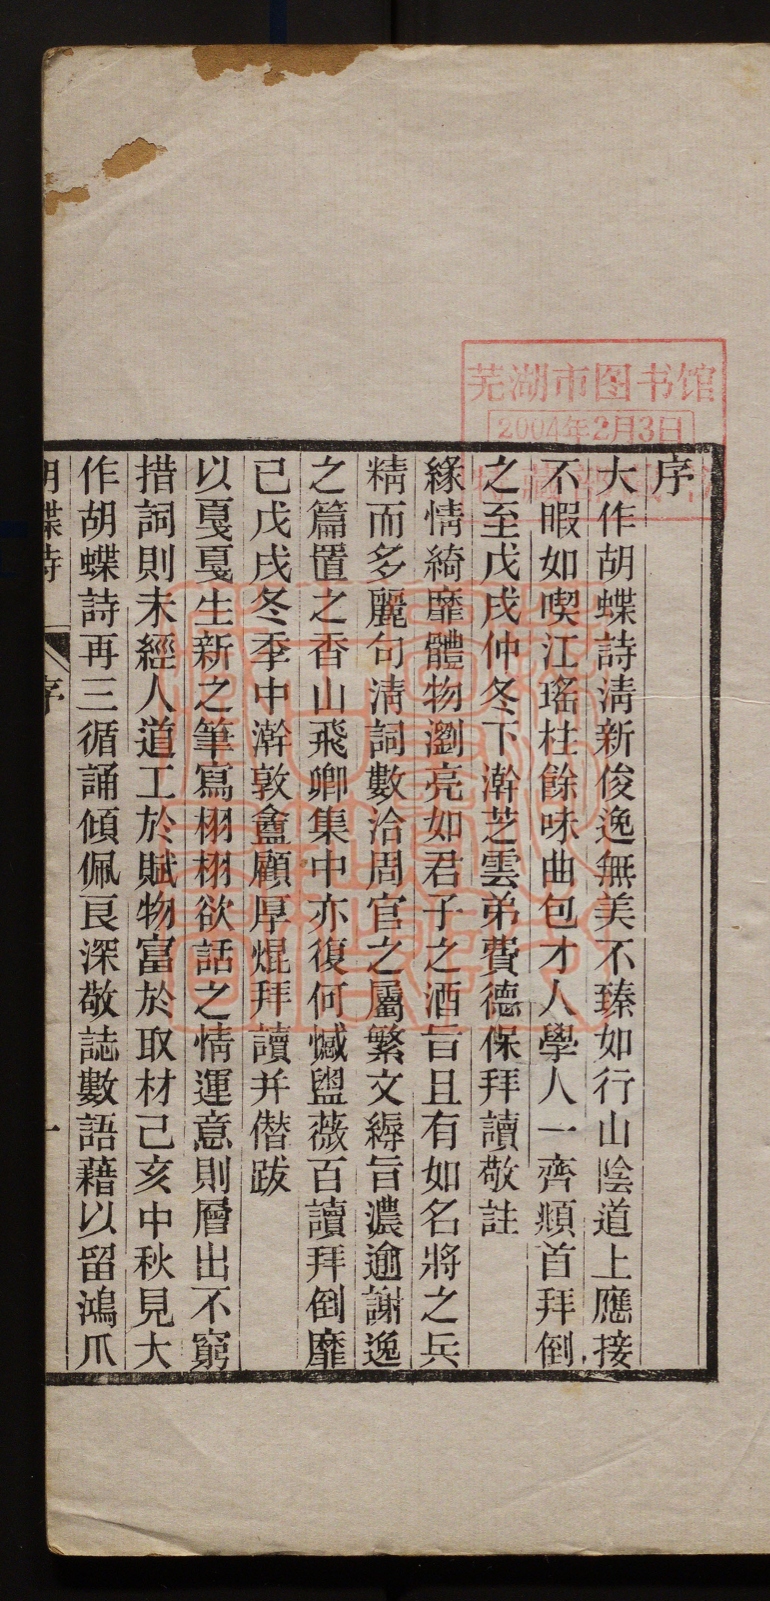 芜湖市图书馆
2004年2月3日
藏
序
大作胡蝶詩清新俊逸無美不臻如行山陰道上應接
不暇如喫江瑤柱餘味曲包才人學人一齊頫首拜倒
之至戊戌仲冬下澣芝雲弟費德保拜讀敬註
緣情綺靡體物瀏亮如君子之酒旨且有如名將之兵
精而多麗句淸詞數洽周官之屬繁文縟旨濃逾謝逸
之篇置之香山飛卿集中亦復何憾盥薇百讀拜倒靡
已戊戌冬季中澣敦盦顧厚焜拜讀并僭跋
以戛戛生新之筆寫栩栩欲話之情運意則層出不窮
措詞則未經人道工於賦物富於取材己亥中秋見大
作胡蝶詩再三循誦傾佩良深敬誌數語藉以留鴻爪
胡蝶詩
序
一